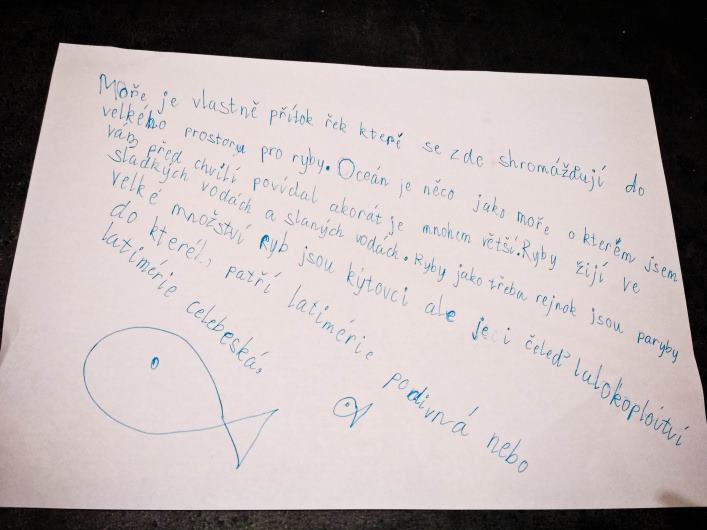 Moře je vlastně přítok řek které se zde shromáždují do
velkého prostoru pro ryby. Oceán je něco jako moře o kterém jsem
vám před chvílí povídal akorát je mnohem větší. Ryby žijí ve
sladkých vodách a slaných vodách. Ryby jako třeba rejnok jsou paryby
velké množství ryb jsou kýtovci ale je i čeleď lalokoploutví
do které patří latimérie podivná nebo
latimérie celebeská.